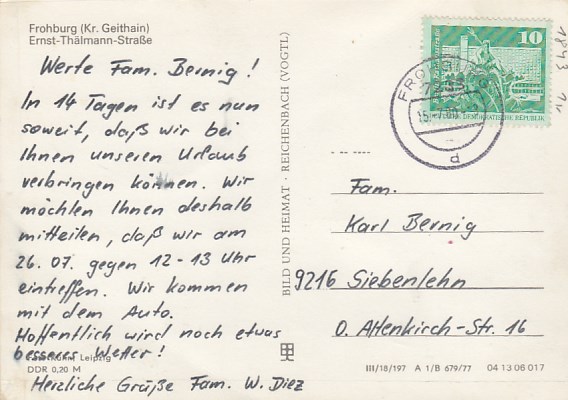 Frohburg (Kr. Geithain)
Ernst-Thälmann-Straße
Werte Fam. Bernig!
In 14 Tagen ist es nun
soweit, daß wir bei
Ihnen unseren Urlaub
verbringen können. Wir
möchten Ihnen deshalb
mitteilen, daß wir am
26. 07. gegen 12-13 Uhr
eintreffen. Wir kommen
mit dem Auto.
Hoffentlich wird noch etwas
besseres Wetter!
Leipzig
DDR 0,20 M
Herzliche Grüße Fam. W. Diez
BILD UND HEIMAT · REICHENBACH (VOGTL)
10
DEMOKRATISCHE REPUBLIK
d
1843
Fam.
Karl Bernig
9216 Siebenlehn
O. Altenkirch-Str. 16
III/18/197 A 1/B 679/77 04 13 06 017